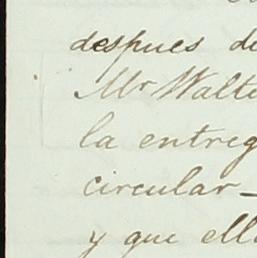 despues de
Mr Walte
la entreg
circular_
y que ell